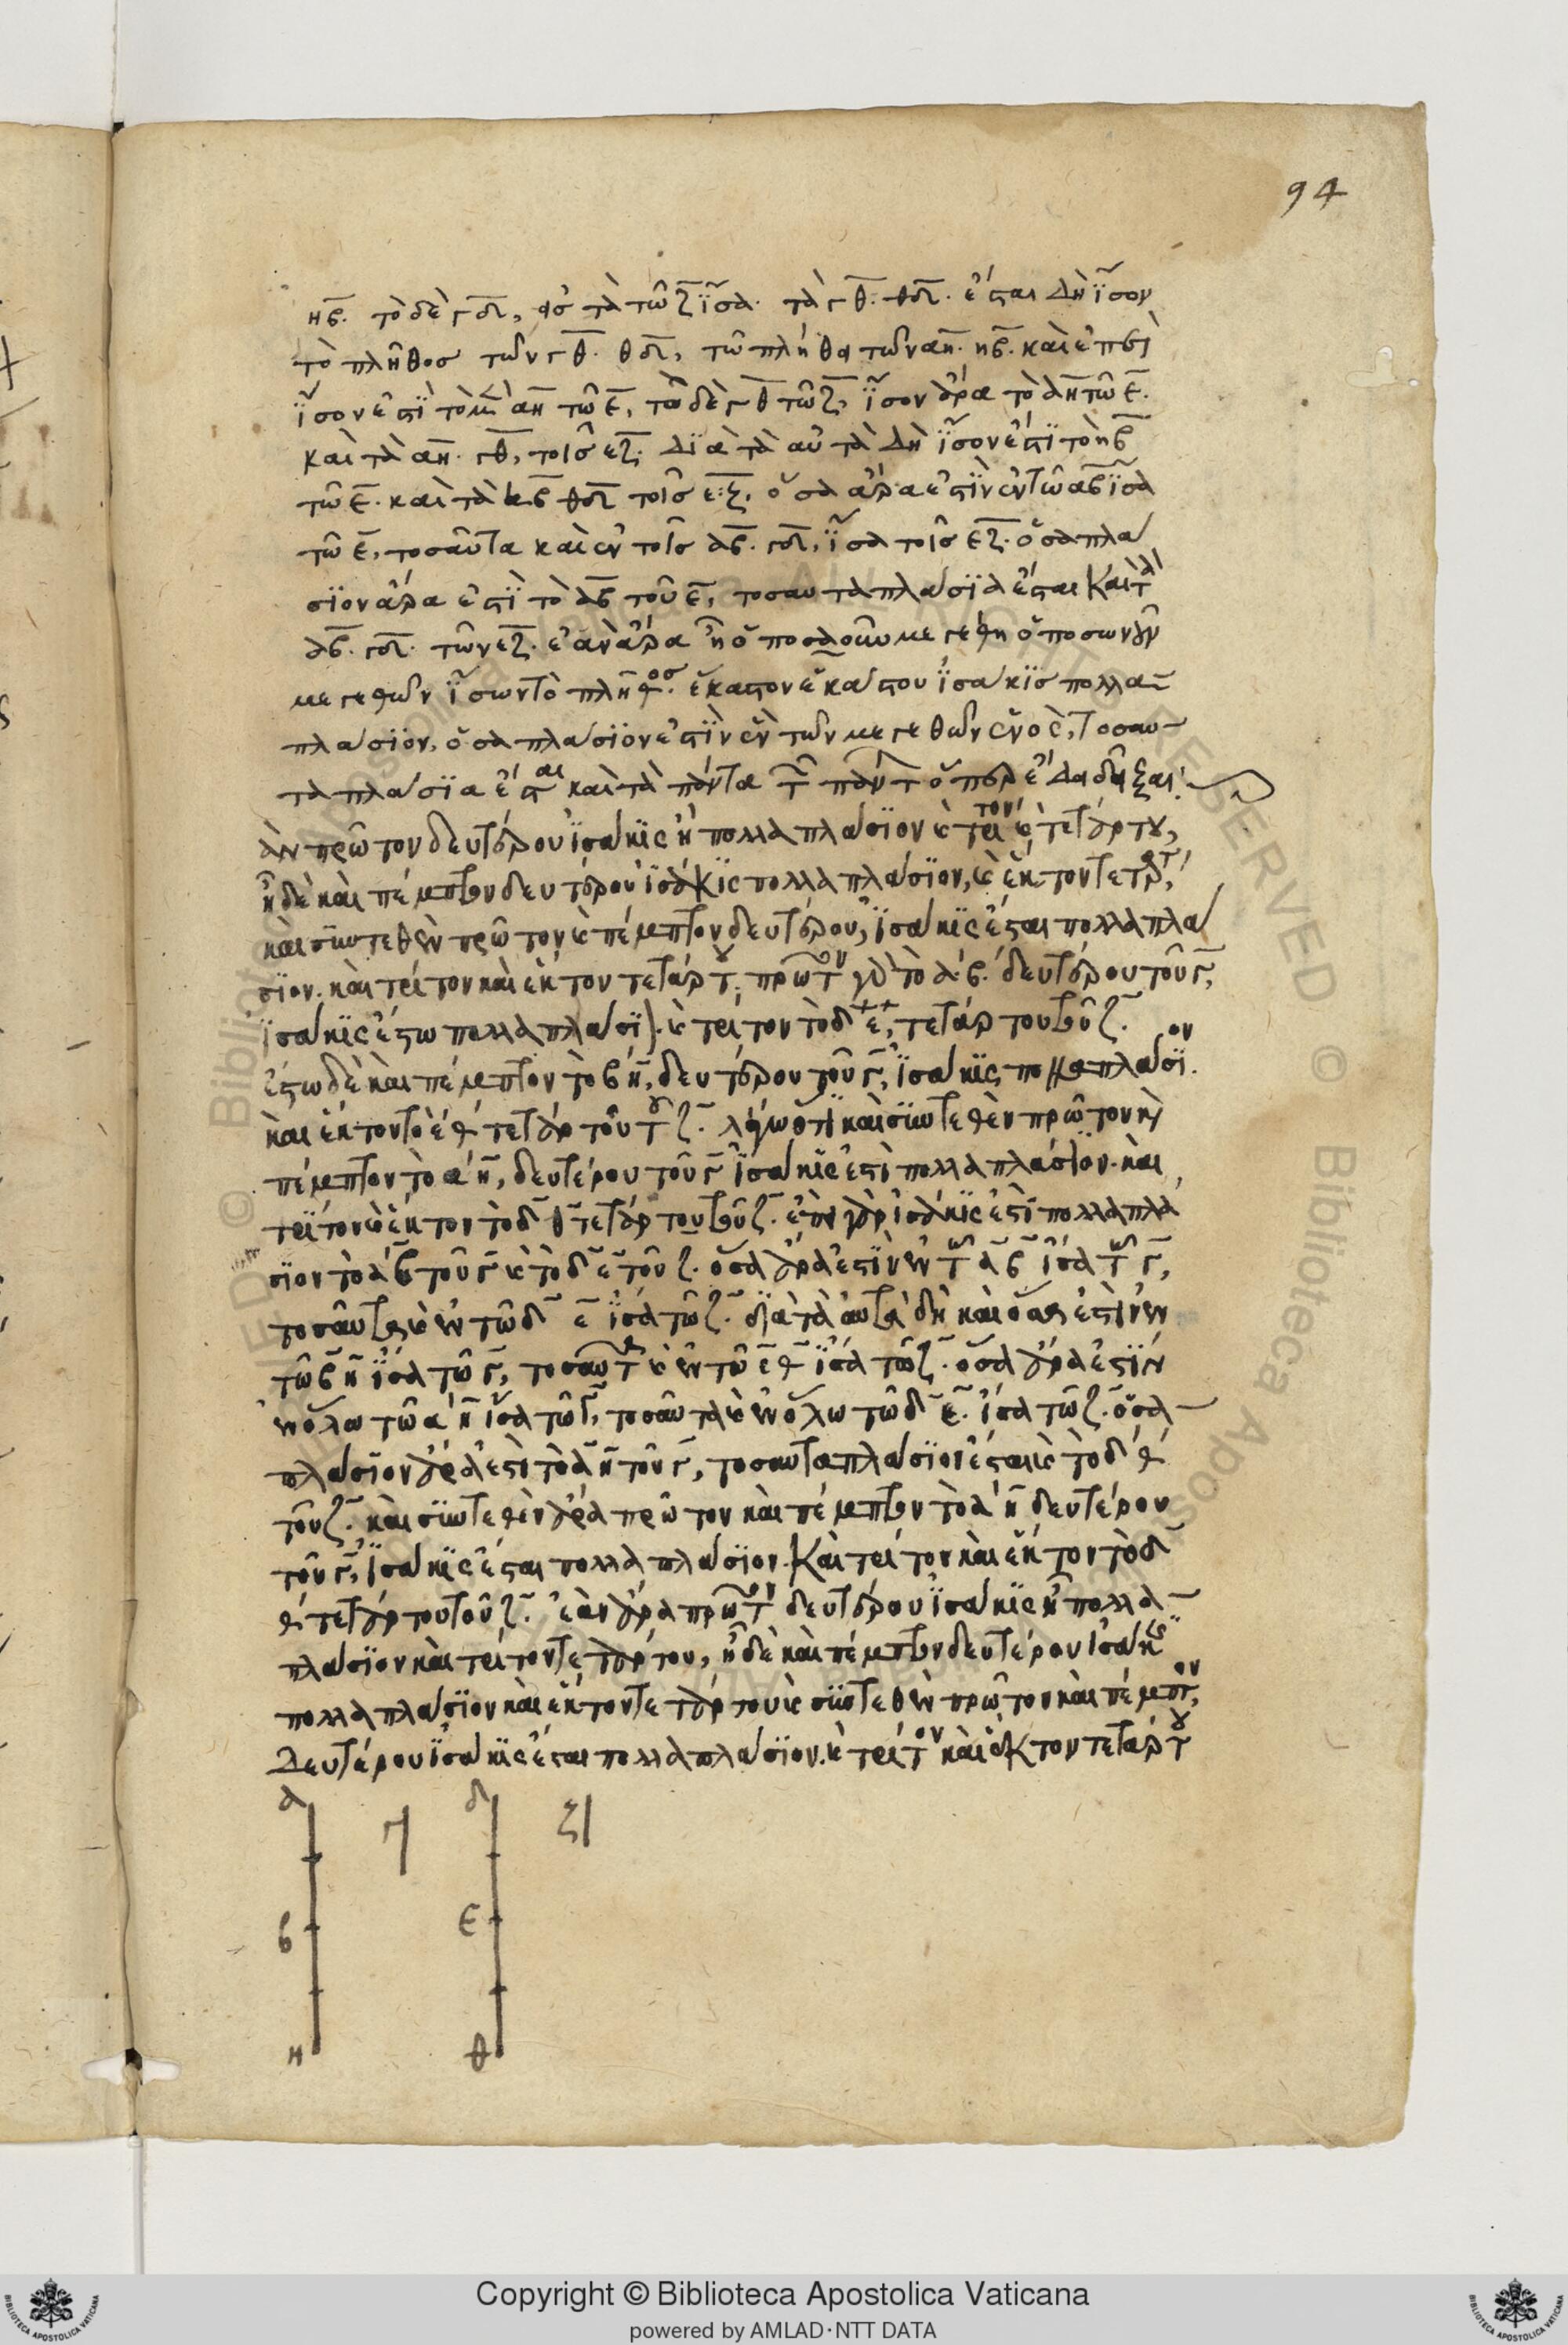 94
ηβ. τὸ δὲ γδ, εἰς τὰ τῶ ζ ἴσα. τὰ γθ. θδ. ἔσται δὴ ἴσον
τὸ πλῆθος τῶν γθ. θδ, τῶ πλήθει τῶν αη. ηβ. καὶ ἐπεὶ
ἴσον ἐστὶ τὸ μὲν αη τῶ ε, τὸ δὲ γθ τῶ ζ, ἴσον ἄρα τὸ αη τῶ ε.
καὶ τὰ αη. γθ, τοῖς εζ. διὰ τὰ αὐτὰ δὴ ἴσον ἐστὶ τὸ ηβ
τῶ ε. καὶ τὰ ηβ θδ τοῖς ε.ζ. ὅσα ἄρα ἐστὶν ἐν τῶ αβ ἴσα
τῶ ε, τοσαῦτα καὶ ἐν τοῖς αβ. γδ, ἴσα τοῖς εζ. ὁσαπλά
σιον ἄρα ἐστὶ τὸ αβ τοῦ ε, τοσαυταπλάσια ἔσται καὶ τὰ
αβ. γδ. τῶν εζ. ἐὰν ἄρα ἦ ὁποσαοῦν μεγέθη ὁποσωνοῦν
μεγεθῶν ἴσων τὸ πλῆθος. ἕκαστον ἑκάστου ἰσάκις πολλα
πλάσιον, ὁσαπλάσιόν ἐστὶν ἓν τῶν μεγεθῶν ἑνὸς, τοσαυ
ταπλάσια ἔσται καὶ τὰ πάντα τ πάντ ὅπερ ἔδει δεῖξαι
ἐὰν πρῶτον δευτέρου ἰσάκις ἦ πολλαπλάσιον κ τρίτον τετάρτου,
ἦ δὲ καὶ πέμπτον δευτέρου ἰσάκις πολλαπλάσιον, κ ἕκτον τετάρτ,
καὶ συντεθὲν πρῶτον κ πέμπτον δευτέρου, ἰσάκις ἔσται πολλαπλά
σιον. καὶ τρίτον καὶ ἕκτον τετάρτου. πρῶτον γὰρ τὸ α.β. δευτέρου τοῦ γ,
ἰσάκις ἔστω πολλαπλάσι. κ τρίτον τὸ δ ε, τετάρτου τοῦ ζ.
ἔστω δὲ καὶ πέμπτον τὸ βη, δευτέρου τοῦ γ, ἰσάκις πολλαπλάσιον.
καὶ ἕκτον τὸ εθ τετάρτου τοῦ ζ. λέγω ὅτι καὶ συντεθὲν πρῶτον κ
πέμπτον τὸ αη, δευτέρου τοῦ γ ἰσάκις ἐστὶ πολλαπλάσιον. καὶ
τρίτον κ ἕκτον τὸ δ θ τετάρτου τοῦ ζ. ἐπεὶ γὰρ ἰσάκις ἐστὶ πολλαπλά
σιον τὸ αβ τοῦ γ κ τὸ δ ε τοῦ ζ. ὅσα ἄρα ἐστὶν ἐν τῶ α β ἴσα τῶ γ,
τοσαῦτα κ ἐν τῶ δ ε ἴσα τῶ ζ. διὰ τὰ αὐτὰ δὴ καὶ ὅσα ἐστὶν ἐν
τῶ β η ἴσα τῶ γ, τοσαῦτα κ ἐν τῶ ε θ ἴσα τῶ ζ. ὅσα ἄρα ἐστὶν
ἐν ὅλω τῶ α η ἴσα τῶ γ, τοσαῦτα κ ἐν ὅλω τῶ δ ε. ἴσα τῶ ζ. ὁσα
πλάσιον ἄρα ἐστὶ τὸ α η τοῦ γ, τοσαυταπλάσιον ἔσται κ τὸ δ θ
τοῦ ζ. καὶ συντεθὲν ἄρα πρῶτον καὶ πέμπτον τὸ α η δευτέρου
τοῦ γ, ἰσάκις ἔσται πολλαπλάσιον. καὶ τρίτον καὶ ἕκτον τὸ δ
θ τετάρτου τοῦ ζ. ἐὰν ἄρα πρῶτον δευτέρου ἰσάκις ἦ πολλα
πλάσιον καὶ τρίτον τετάρτου, ἦ δὲ καὶ πέμπτον δευτέρου ἰσάκις
πολλαπλάσιον καὶ ἕκτον τετάρτου κ συντεθὲν πρῶτον καὶ πέμπτον,
δευτέρου ἰσάκις ἔσται πολλαπλάσιον. κ τρίτον καὶ ἕκτον τετάρτου
α γ δ ζ
β ε
η θ
Copyright © Biblioteca Apostolica Vaticana
powered by AMLAD·NTT DATA